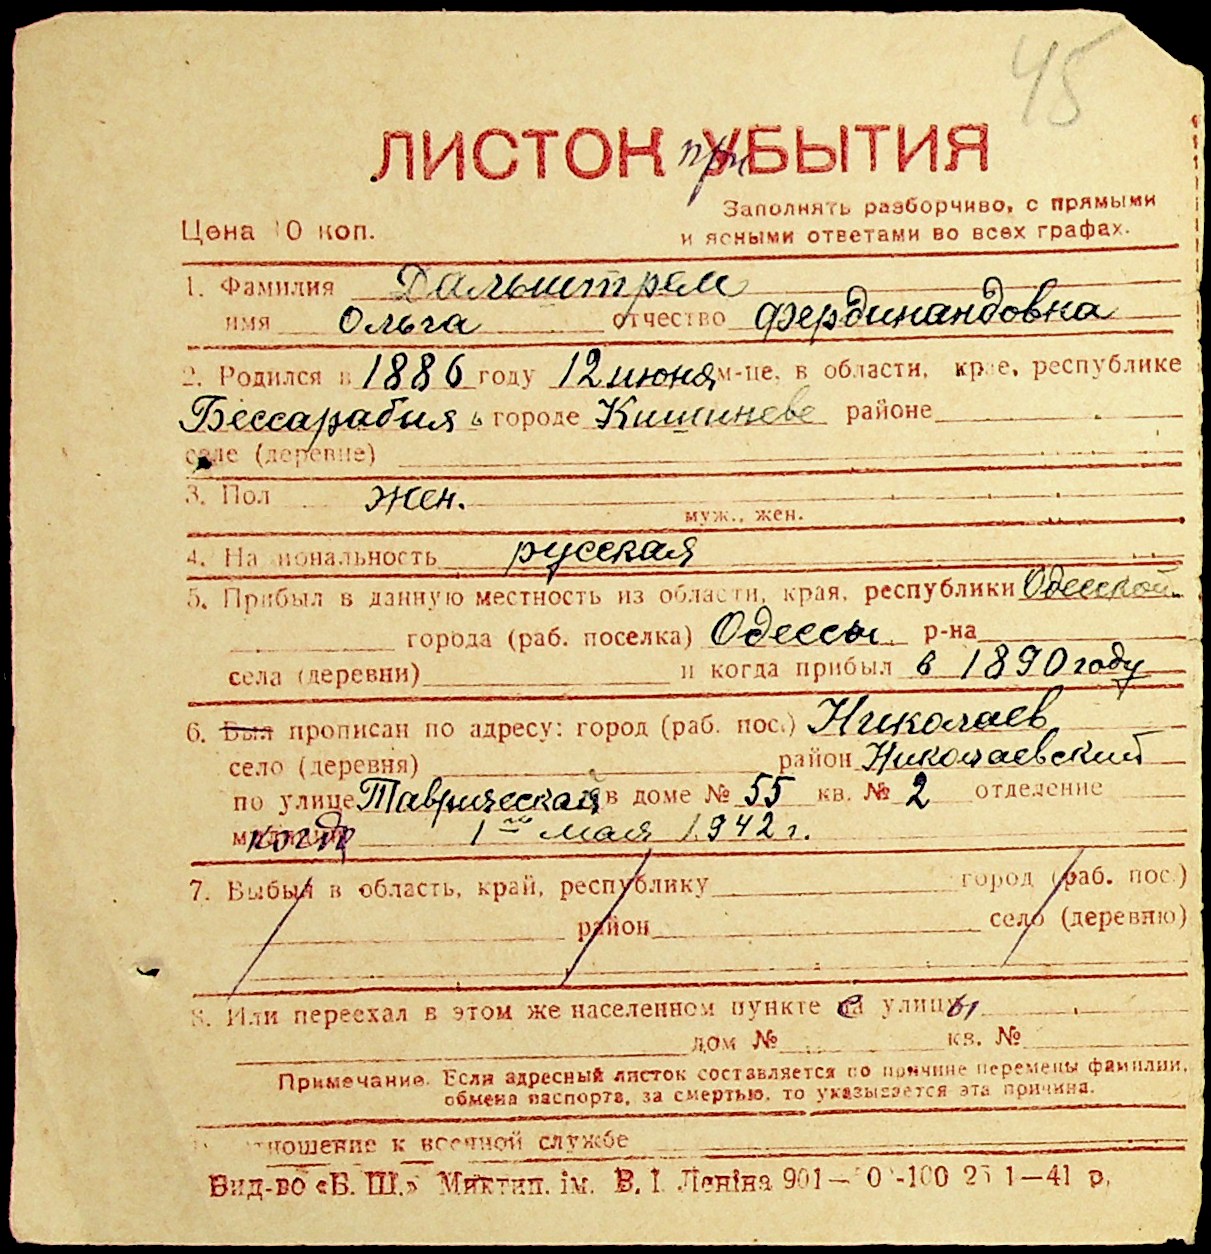 45
ЛИСТОК при УБЫТИЯ
Заполнять разборчиво, с прямыми
Цена 10 коп. и ясными ответами во всех графах.
1. Фамилия Дальштрем
имя Ольга отчество Фердинандовна
2. Родился в 1886 году 12 июня м-це, в области, крае, республике
Бессарабия в городе Кишиневе районе
селе (деревне)
3. Пол жен.
муж., жен.
4. Национальность русская
5. Прибыл в данную местность из области, края, республики Одесской
города (раб. поселка) Одессы р-на
села (деревни) и когда прибыл в 1890 году
6. Был прописан по адресу: город (раб. пос.) Николаев
село (деревня) район Николаевский
по улице Таврической в доме № 55 кв. № 2 отделение
когда 1го мая 1942 г.
7. Выбыл в область, край, республику город (раб. пос.)
район село (деревню)
8. Или переехал в этом же населенном пункте с улицы
дом № кв. №
Примечание. Если адресный листок составляется по причине перемены фамилии,
обмена паспорта, за смертью, то указывается эта причина.
отношение к военной службе
Вид-во «Б. Ш.» Миктип. ім. В. І. Леніна 901— -100 25 1—41 р.